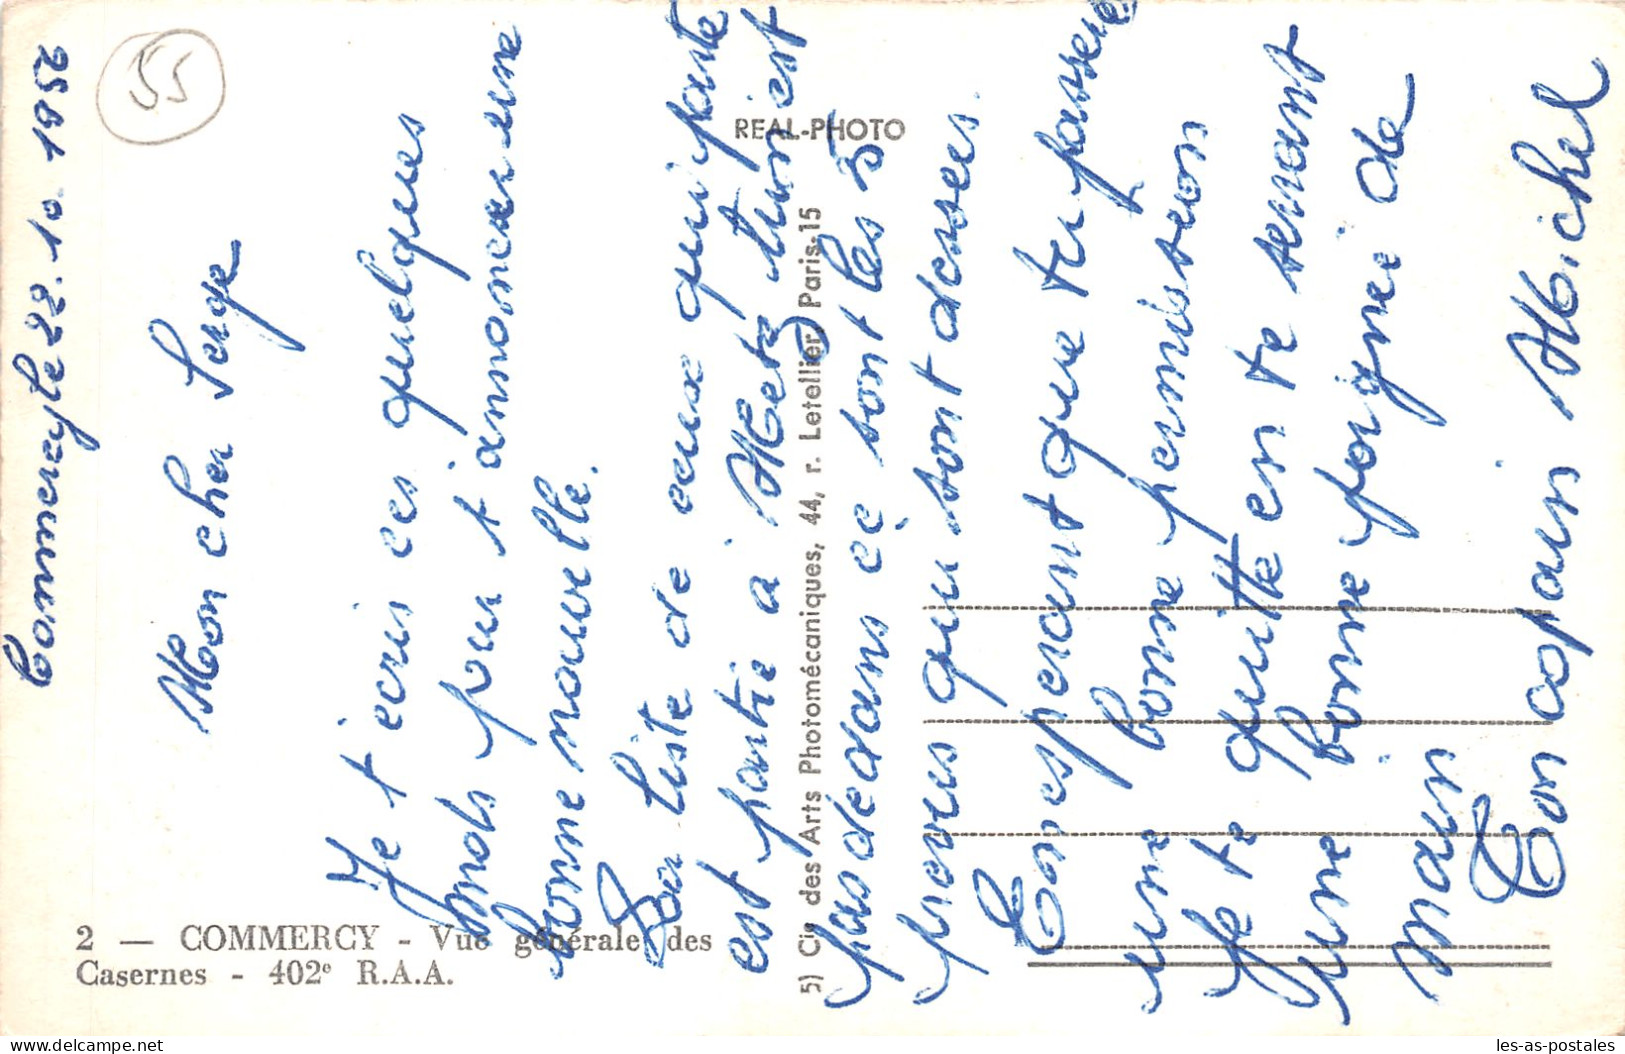 Commercy le 22.10.1956
55
Mon cher Serge
Je t écris ces quelques
mots pour t annoncer une
bonne nouvelle.
La liste de ceux qui parte
est partie à Metz tu n est
pas dedans ce sont les 5
preves qui sont dessus
En esperant que tu passera
une bonne permission
Je te quitte en te serrant
une bonne poignée de
main
Ton copain Michel
REAL-PHOTO
5) Cie des Arts Photomécaniques, 44, r. Letellier, Paris-15
2 — COMMERCY - Vue générale des
Casernes - 402e R.A.A.
les-as-postales
delcampe.net